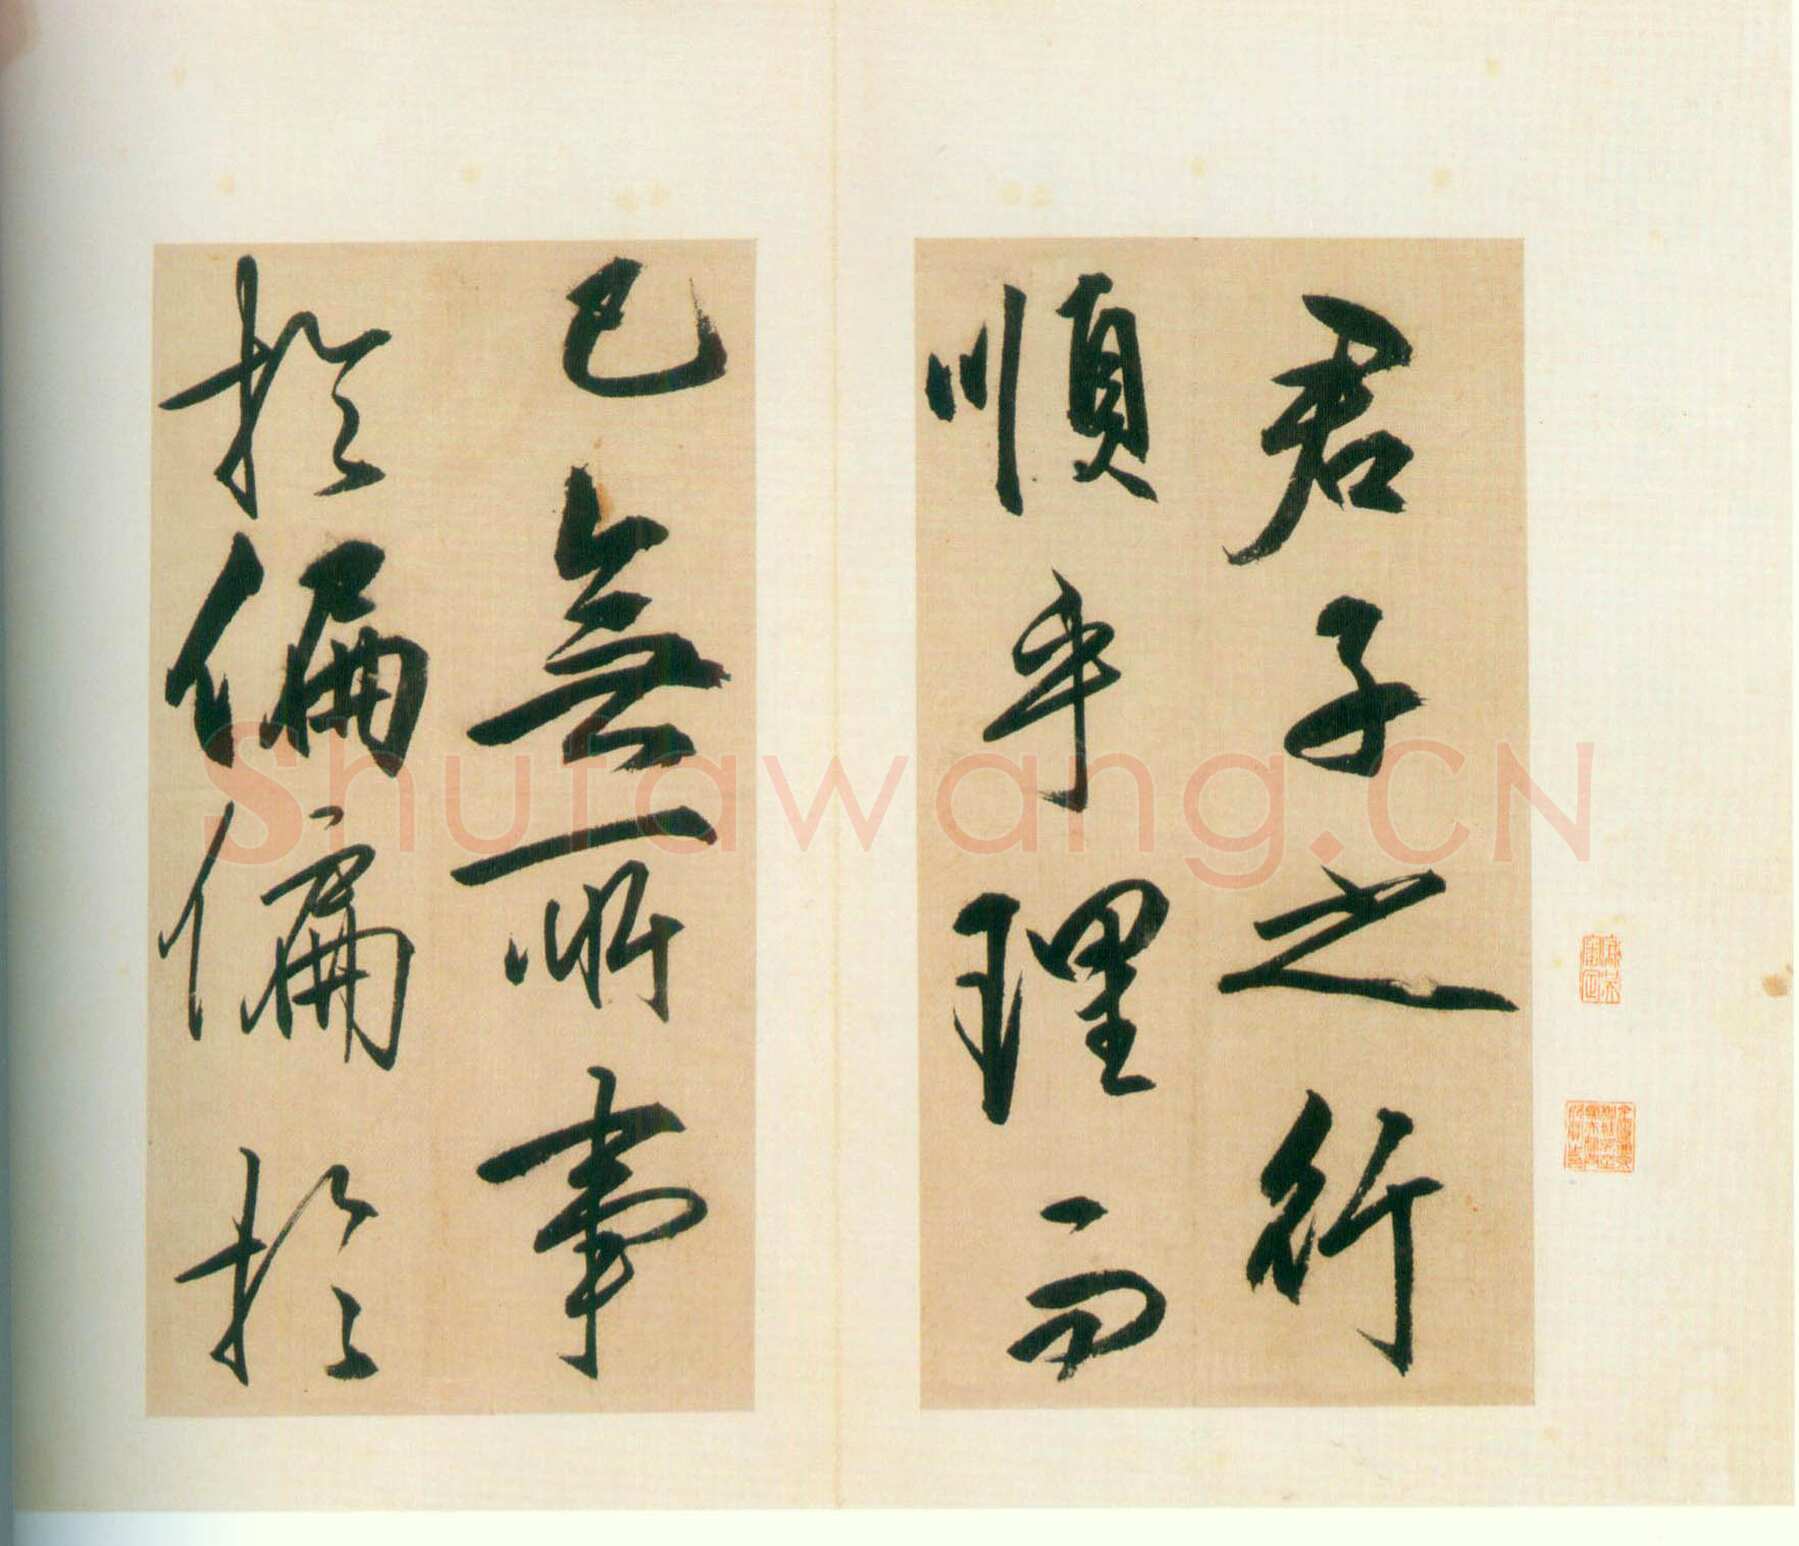 君子之行
順乎理而
已無所事
於偏偏於
Shufawang.CN